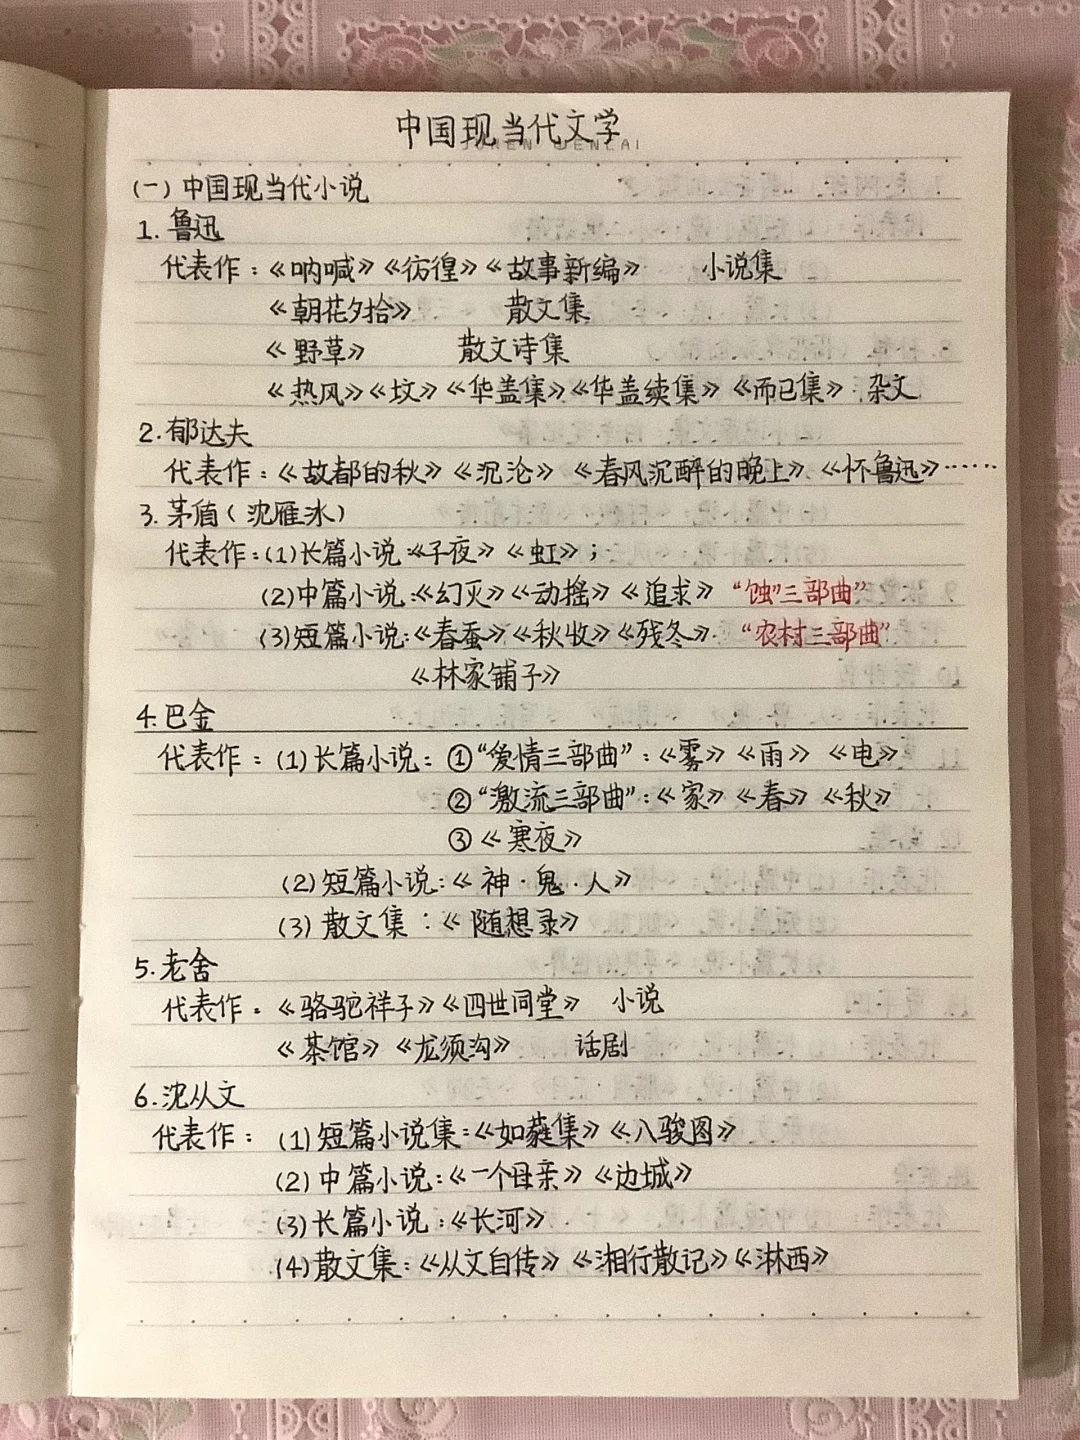 中国现当代文学
(一)中国现当代小说
1.鲁迅
代表作：《呐喊》《彷徨》《故事新编》 小说集
《朝花夕拾》 散文集
《野草》 散文诗集
《热风》《坟》《华盖集》《华盖续集》《而已集》 杂文
2.郁达夫
代表作：《故都的秋》《沉沦》《春风沉醉的晚上》《怀鲁迅》……
3.茅盾(沈雁冰)
代表作：(1)长篇小说：《子夜》《虹》；
(2)中篇小说：《幻灭》《动摇》《追求》 “蚀”三部曲”
(3)短篇小说：《春蚕》《秋收》《残冬》 “农村三部曲”
《林家铺子》
4.巴金
代表作：(1)长篇小说：①“爱情三部曲”：《雾》《雨》《电》
②“激流三部曲”：《家》《春》《秋》
③《寒夜》
(2)短篇小说：《神·鬼·人》
(3)散文集：《随想录》
5.老舍
代表作：《骆驼祥子》《四世同堂》 小说
《茶馆》《龙须沟》 话剧
6.沈从文
代表作：(1)短篇小说集：《如蕤集》《八骏图》
(2)中篇小说：《一个母亲》《边城》
(3)长篇小说：《长河》
(4)散文集：《从文自传》《湘行散记》《淋西》